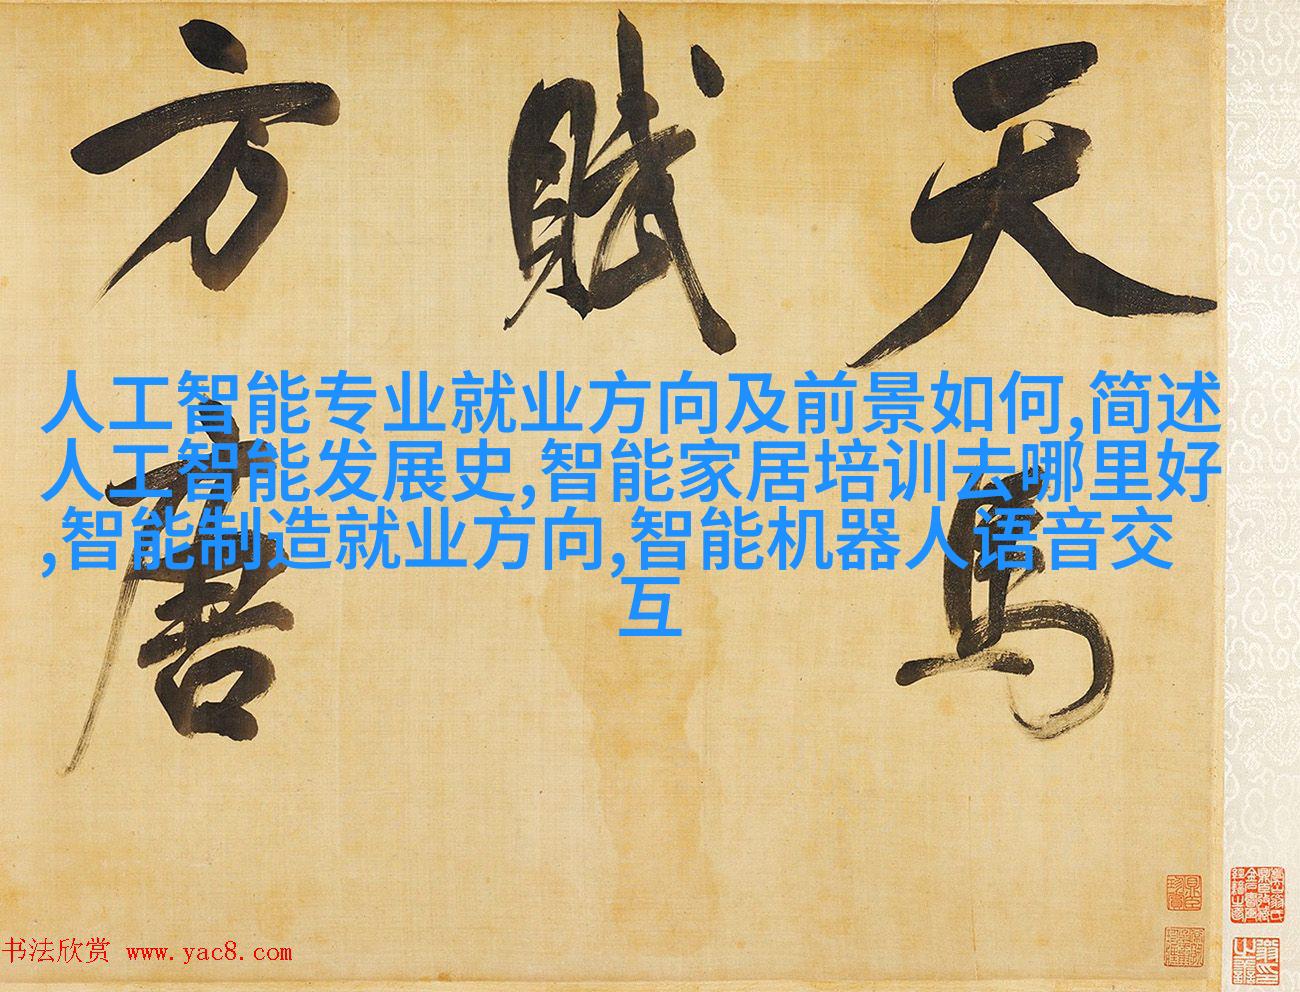 天馬
賦
方唐
人工智能专业就业方向及前景如何,简述
人工智能发展史,智能家居培训去哪里好
,智能制造就业方向,智能机器人语音交
互
书法欣赏 www.yac8.com